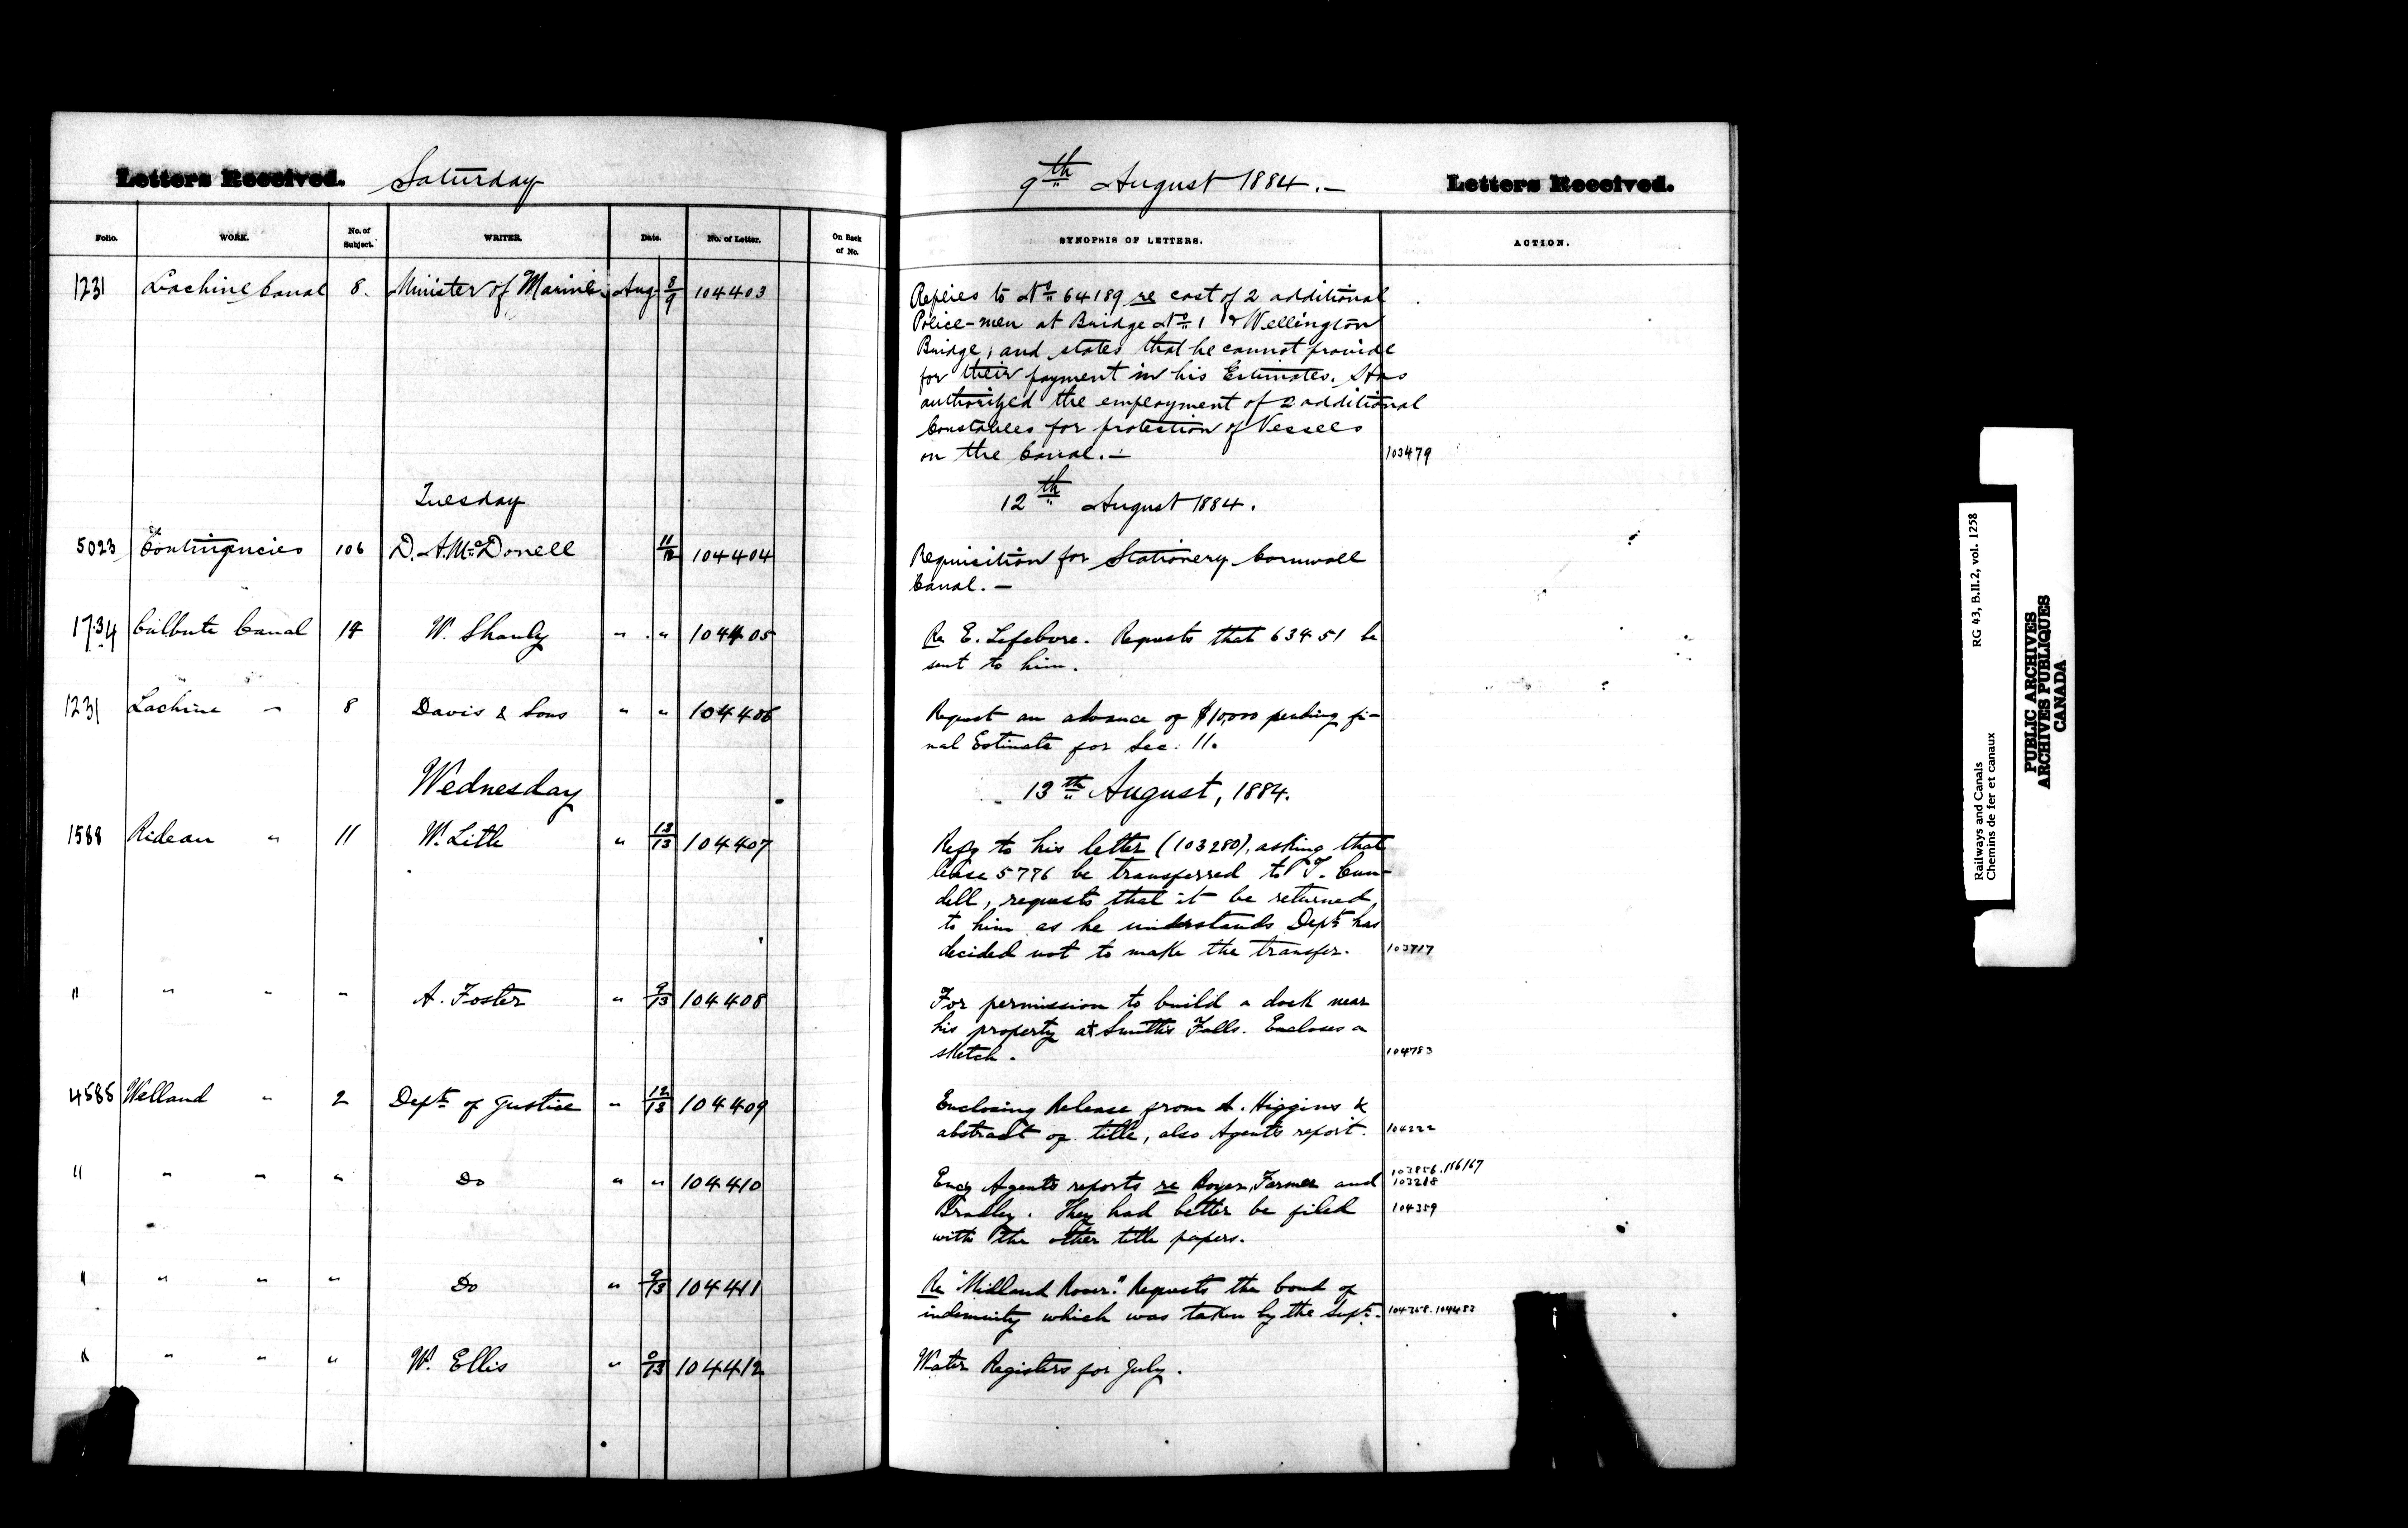 Letters Received. Saturday
Folio. WORK. No. of Subject. WRITER. Date. No. of Letter. On Back of No.
1231 Lachine Canal 8. Minister of Marine Aug 8/9 104403
Tuesday
5023 Contingencies 106 D. A. McDonell 11/12 104404
1734 Culbute Canal 14 W. Shanly " " 104405
1231 Lachine " 8 Davis & Sons " " 104406
Wednesday
1588 Rideau " 11 W. Little " 13/13 104407
" " " " A. Foster " 9/13 104408
4585 Welland " 2 Dept. of Justice " 12/13 104409
" " " " Do " " 104410
" " " " Do " 9/13 104411
" " " " W. Ellis " 0/13 104412
9th August 1884.— Letters Received.
SYNOPSIS OF LETTERS. ACTION.
Replies to No. 64189 re cost of 2 additional
Police-men at Bridge No. 1 & Wellington
Bridge, and states that he cannot provide
for their payment in his Estimates. Has
authorized the employment of 2 additional
Constables for protection of Vessels
on the Canal.— 103479
12th August 1884.
Requisition for Stationery Cornwall
Canal.—
Re E. Lefebvre. Requests that 63451 be
sent to him.
Request an advance of $10,000 pending fi-
nal Estimate for Sec: 11.
13th August, 1884.
Refg to his letter (103280), asking that
lease 5776 be transferred to T. Cun-
dell, requests that it be returned
to him as he understands Dept. has
decided not to make the transfer. 103717
For permission to build a dock near
his property at Smiths Falls. Encloses a
sketch. 104783
Enclosing Release from A. Higgins &
abstract of title, also Agents report. 104222
Encg Agents reports re Boyer, Farmer and 103856.
Bradley. They had better be filed 104359
with the other title papers.
Re "Midland Rover." Requests the bond of
indemnity which was taken by the Supt.
Water Registers for July.
RG 43, B.II.2, vol. 1258
Railways and Canals
Chemins de fer et canaux
PUBLIC ARCHIVES
ARCHIVES PUBLIQUES
CANADA